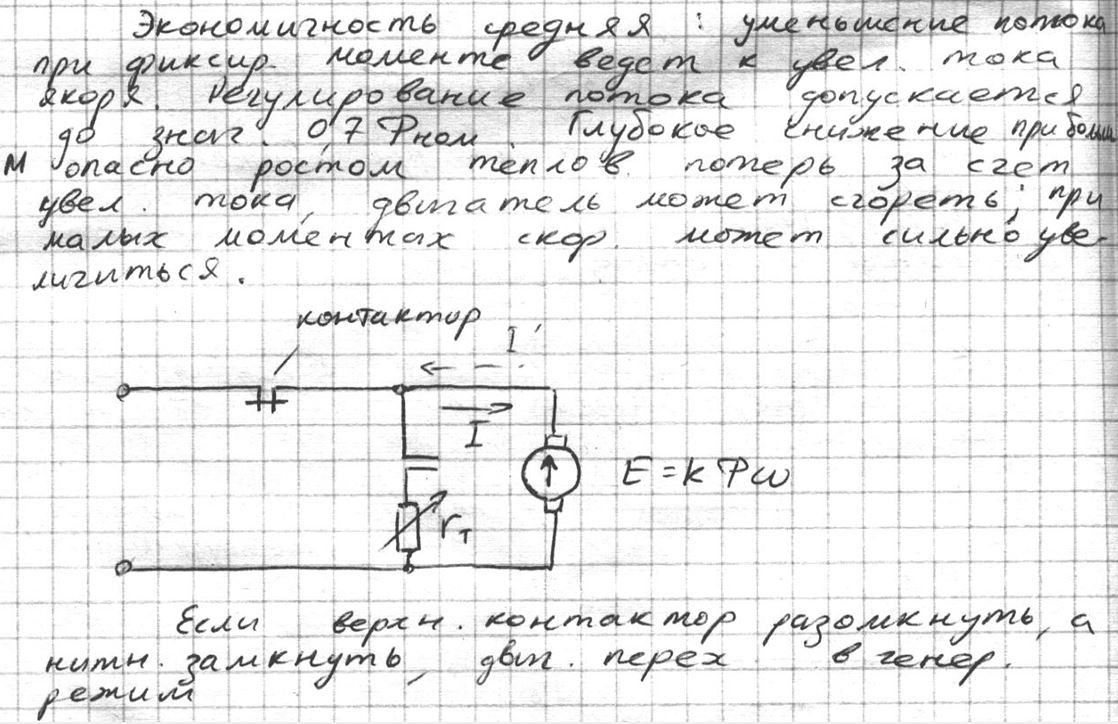 Экономичность средняя : уменьшение потока
при фиксир. моменте ведет к увел. тока
якоря. Регулирование потока допускается
до знач. 0,7 Фном. Глубокое снижение при больш.
М опасно ростом теплов. потерь за счет
увел. тока, двигатель может сгореть; при
малых моментах скор. может сильно уве-
личиться.
контактор
I'
I
E = k Ф ω
rт
Если верхн. контактор разомкнуть, а
нижн. замкнуть, двиг. перех в генер.
режим